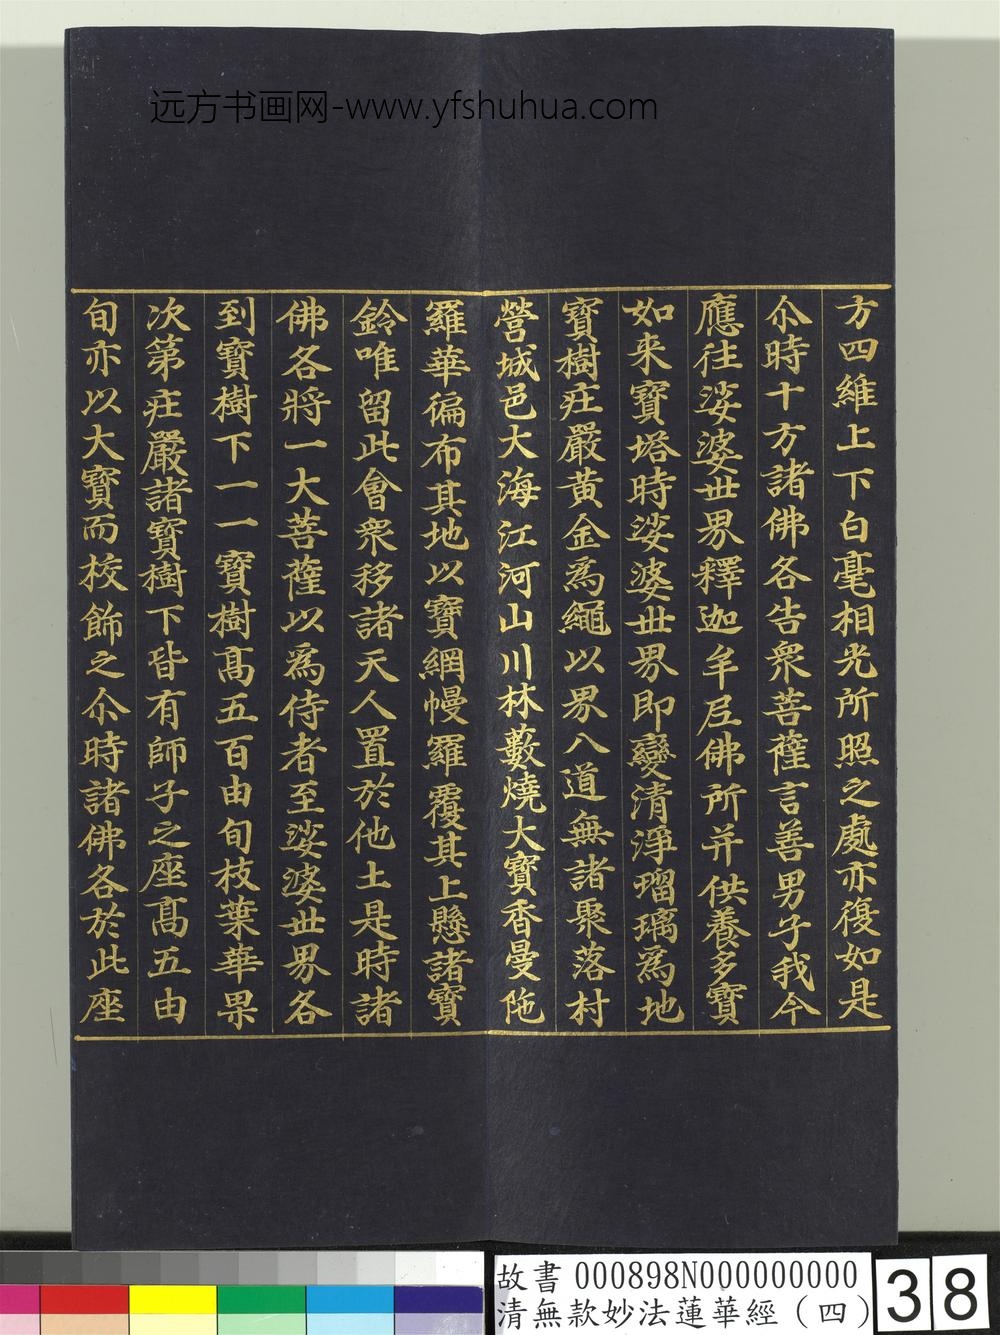 远方书画网-www.yfshuhua.com
方四維上下白毫相光所照之處亦復如是
尒時十方諸佛各告衆菩薩言善男子我今
應往娑婆世界釋迦牟尼佛所并供養多寶
如来寶塔時娑婆世界即變清淨瑠璃爲地
寶樹荘嚴黄金爲繩以界八道無諸聚落村
營城邑大海江河山川林藪燒大寶香曼陁
羅華徧布其地以寶網幔羅覆其上懸諸寶
鈴唯留此會衆移諸天人置於他土是時諸
佛各將一大菩薩以爲侍者至娑婆世界各
到寶樹下一一寶樹髙五百由旬枝葉華果
次第荘嚴諸寶樹下皆有師子之座髙五由
旬亦以大寶而校飾之尒時諸佛各於此座
故書 000898N000000000
清無款妙法蓮華經（四）
38